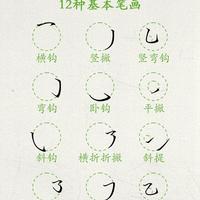 12种基本笔画
横钩 竖撇 竖弯钩
弯钩 卧钩 平撇
斜钩 横折折撇 斜提